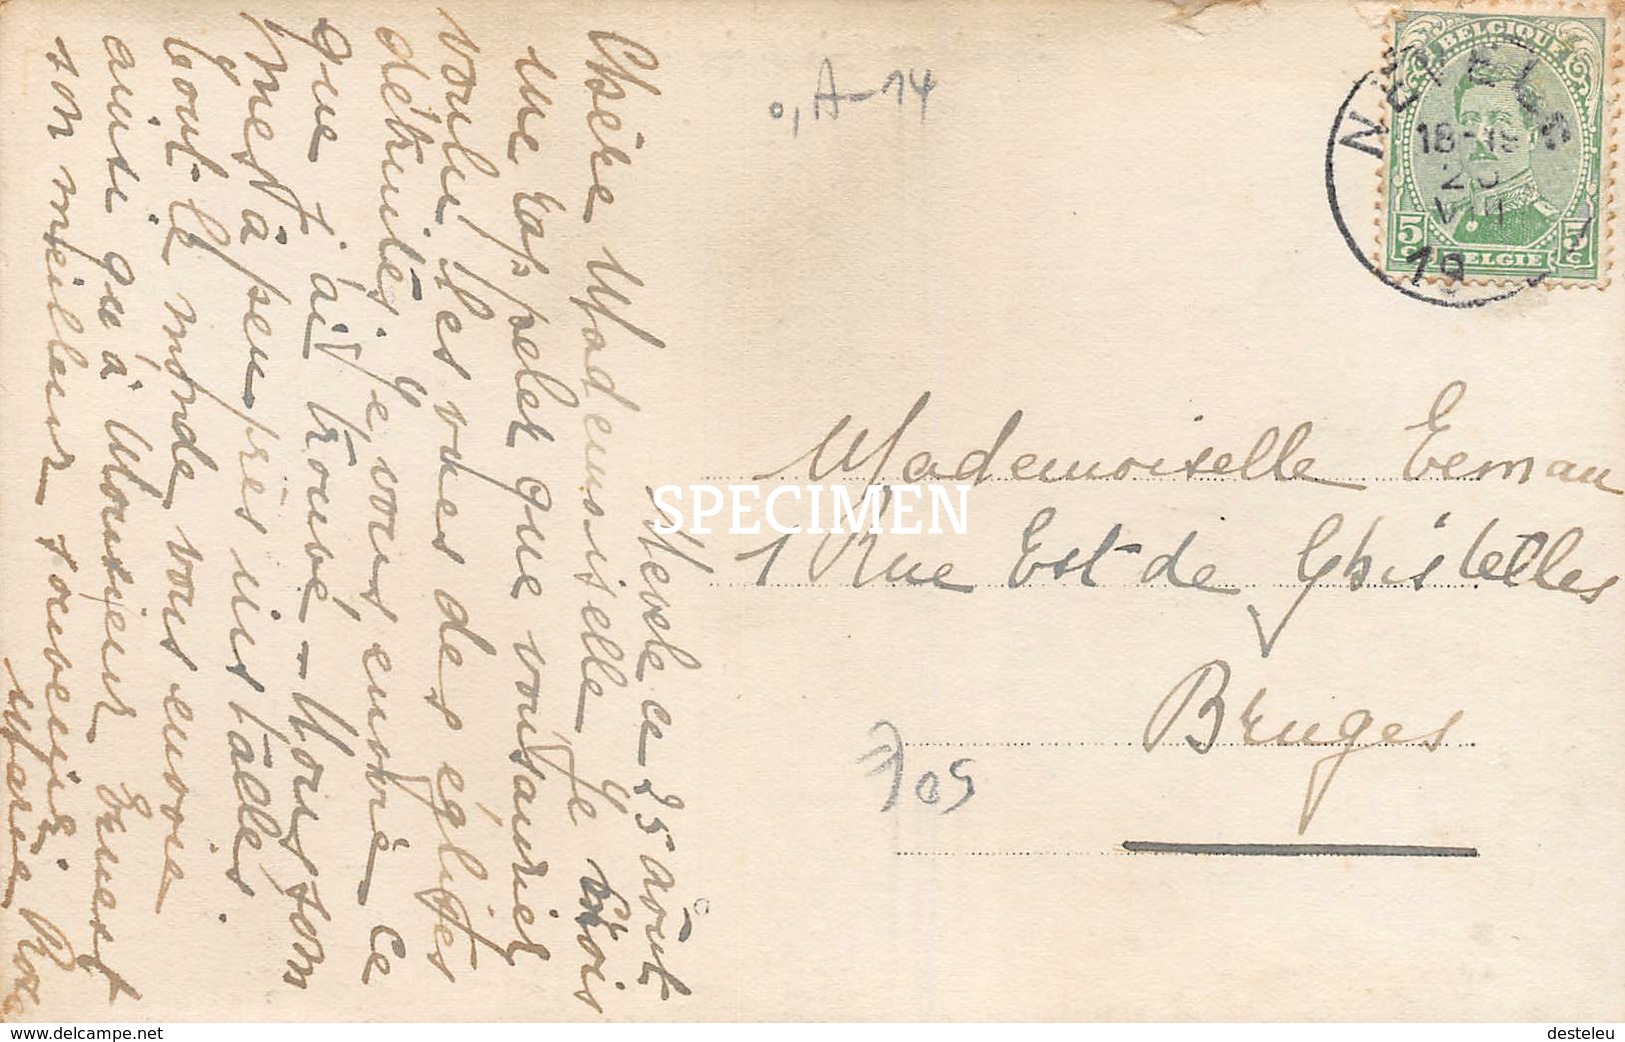 Nevele ce 25 août
Chère Mademoiselle, Je crois
me rappeler que vous auriez
voulu des vues des églises
détruites, je vous envoie ce
que j'ai trouvé - Nous som
mes à peu près installés.
Tout le monde vous envoie
ainsi qu'à Monsieur Ernest
son meilleur souvenir
Marie
0, A-14
BELGIQUE
5c 5c
BELGIE
NEVELE
18-19
VIII
19
Mademoiselle Eeman
1 Rue Est de Ghistelles
Bruges
705
SPECIMEN
www.delcampe.net
desteleu